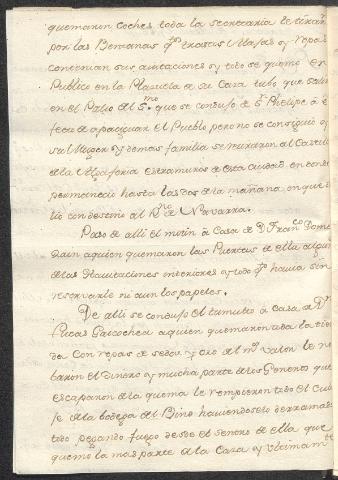 quemaron coches toda la secretaria le tiraron
por las Bentanas qtos trastos Alajas y ropas
contenian sus avitaciones y todo se quemo en
Publico en la Plazuela de su Casa tubo que salir
en el Palio del Smo que se conduxo de Sn Phelipe á e
fecto de apaciguar el Pueblo pero no se consiguió y
su Muger y demas familia se mudaron al Castillo
de la Alxaferia extramuros de esta Ciudad, en donde
permanecio hasta las dos de la mañana, en que sa
lio con destino al Rno de Navarra.
Paso de alli el motin á Casa de Dn Franco Dome
zain aquien quemaron las Puertas de ella algun
de las Havitaciones interiores y todo qto havia sin
reservarle ni aun los papeles.
De alli se conduxo el tumulto á Casa de Dn
Lucas Goicochea aquien quemaron toda la tien
da con ropas de sedas y oro del mor valor le ro
baron el dinero y mucha parte de los Generos que
escaparon de la quema le rompieron todo el Cuba
ge de la bodega del Bino haviendoselo derramado
todo pegando fuego desde el seno de ella que
quemo la mas parte de la Casa y ultimamte